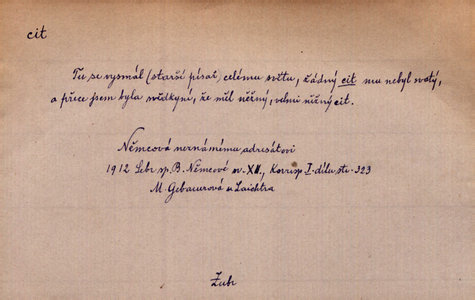 cit
Tu se vysmál (starší písař) celému světu, žádný cit mu nebyl svatý,
a přece jsem byla svědkyní, že měl něžný, velmi něžný cit.
Němcová neznámému adresátovi
1912 Sebr. sp. B. Němcové sv. XII., Korresp. I. dílu str. 323
M. Gebauerová u Laichtra
Zubr